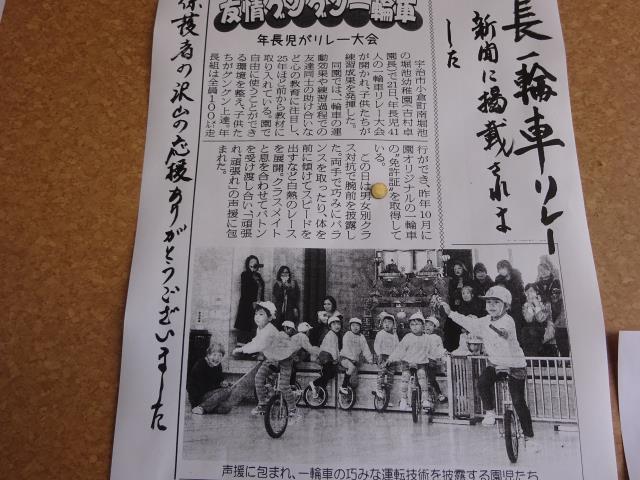 長 一輪車リレー
新聞に掲載されま
した
友情グングン一輪車
年長児がリレー大会
宇治市小倉町南堀池
の堀池幼稚園(吉村卓
園長)で21日、年長児41
人の一輪車リレー大会
が開かれ、子供たちが
練習成果を発揮した。
同園では、一輪車の運
動効果や練習過程での
友達同士の助け合いな
ど心の教育に注目し、
25年ほど前から教材に
取り入れている。園で
自由に使うことができ
る環境を整え、子供た
ちがグングン上達。年
長組は全員100㍍走
行ができ、昨年10月に
園オリジナルの一輪車
の“免許証”を取得して
いる。
この日は男女別クラ
ス対抗で腕前を披露し
た。両手で巧みにバラ
ンスを取ったり、体を
前に傾けてスピードを
出すなど白熱のレース
を展開。クラスメイト
と息を合わせてバトン
を受け渡し合い、「頑張
れ、頑張れ」の声援に包
まれた。
声援に包まれ、一輪車の巧みな運転技術を披露する園児たち
保護者の沢山の応援ありがとうございました